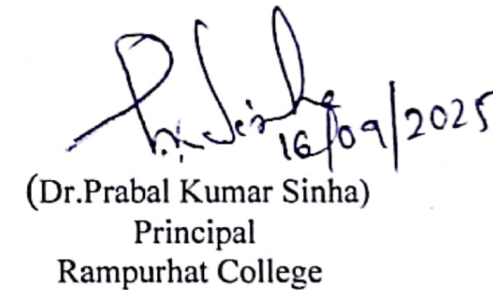 P.K. Sinha
16/09/2025
(Dr.Prabal Kumar Sinha)
Principal
Rampurhat College